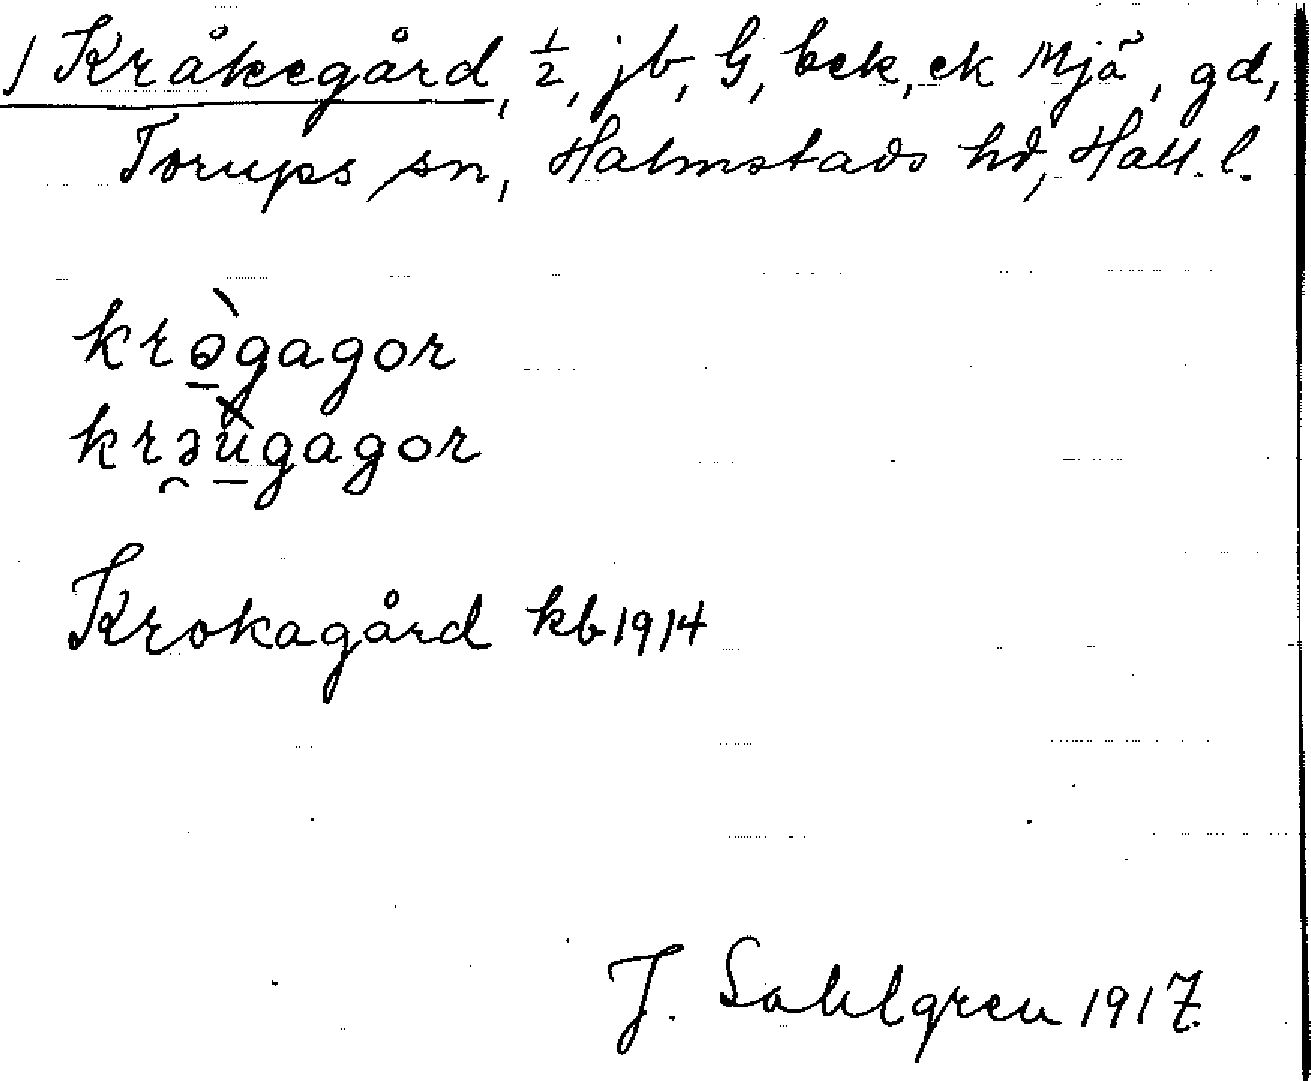 1 Kråkegård, ½, jb, G, bek, ek Mjä, gd,
Torups sn, Halmstads hd, Hall. l.
krə̀gagor
krəùgagor
Krokagård kb 1914
J. Sahlgren 1917.